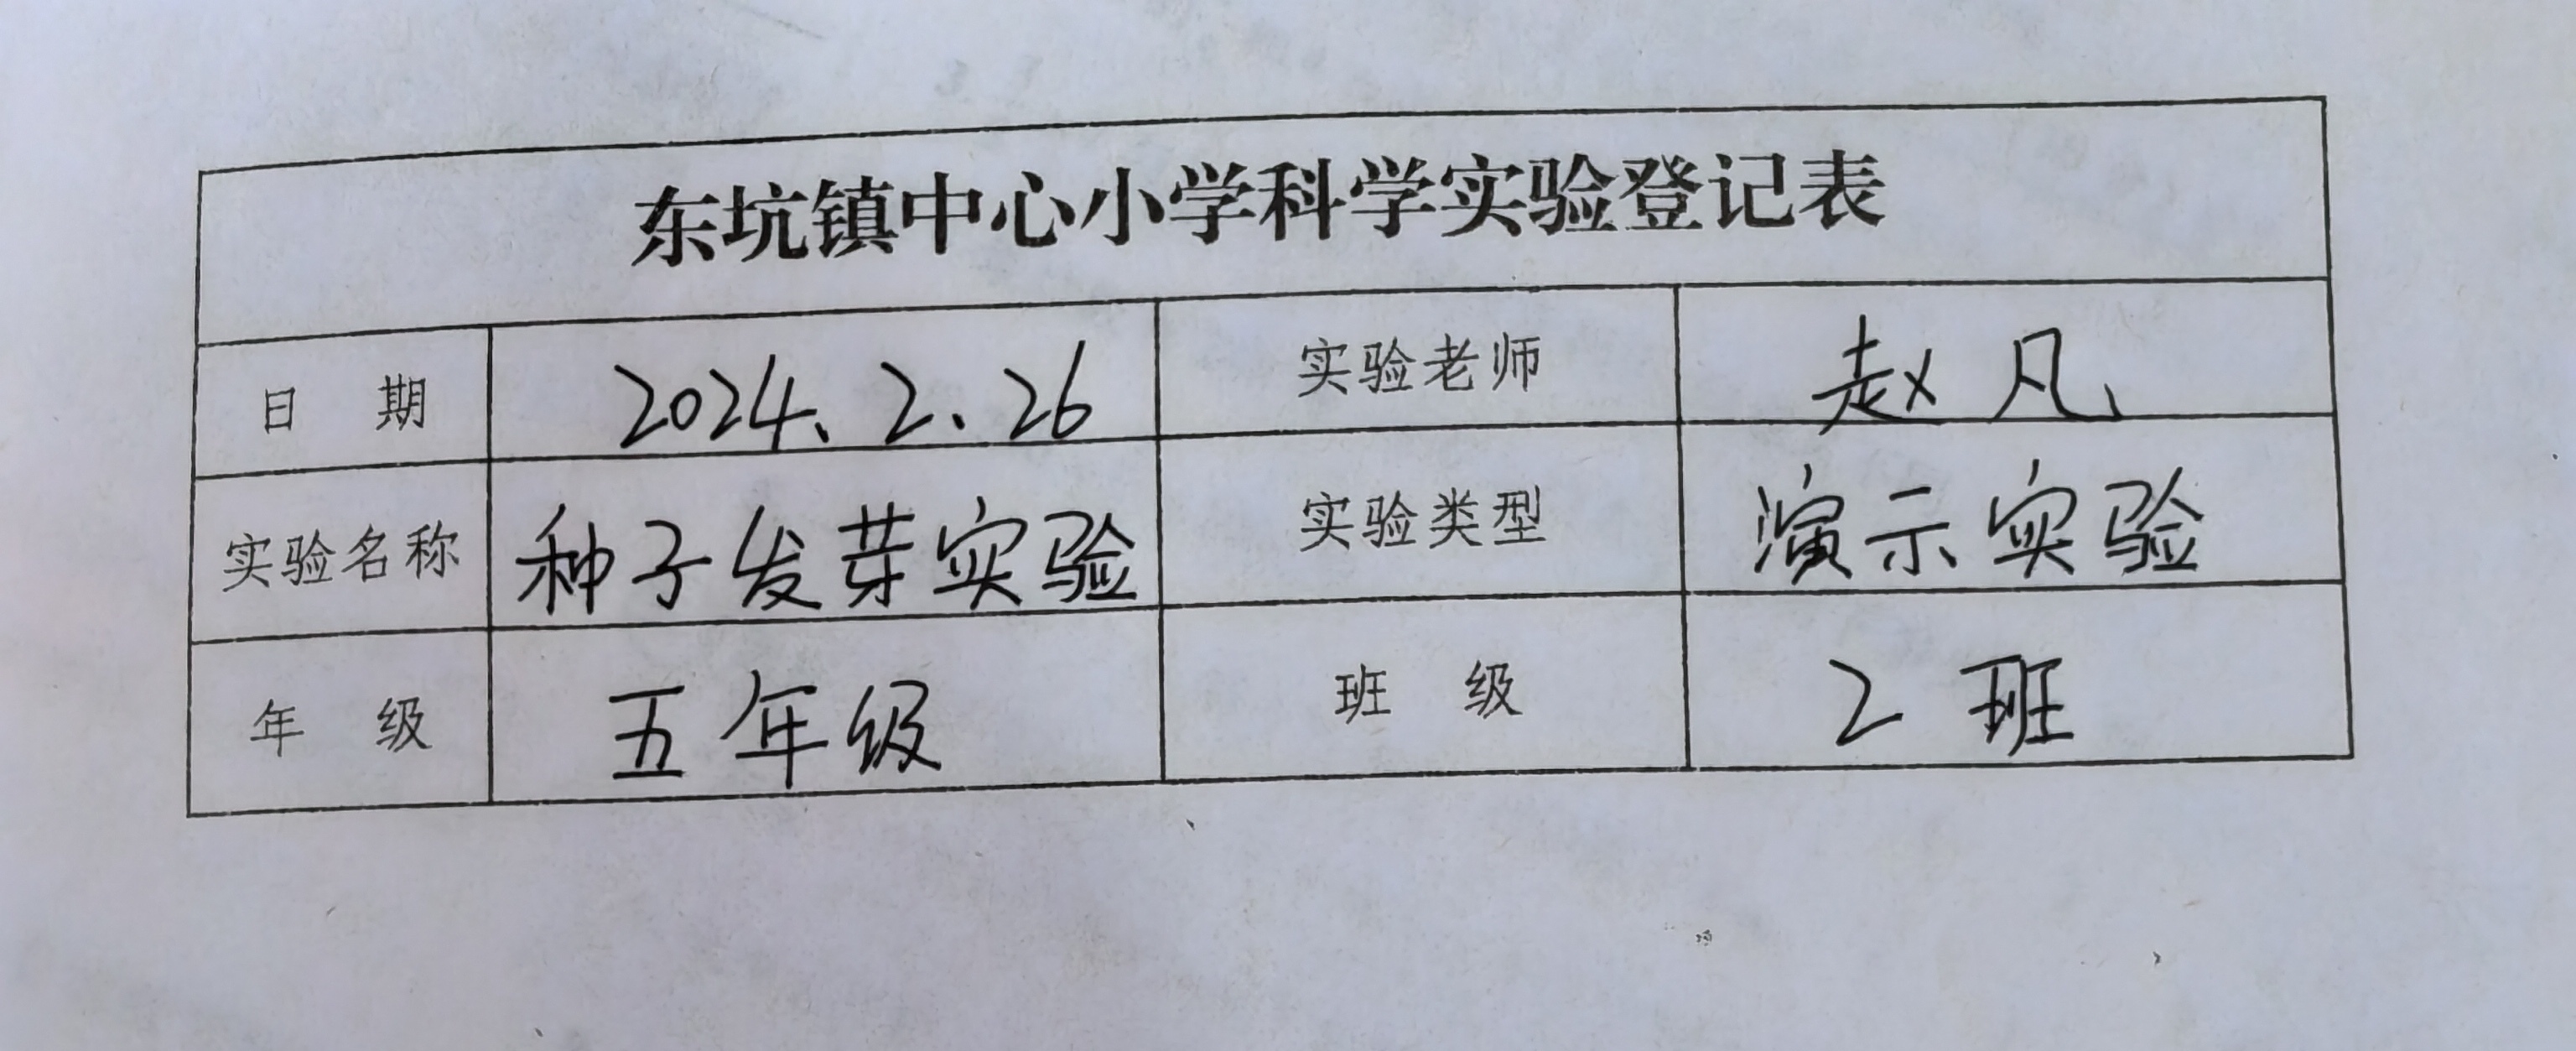 东坑镇中心小学科学实验登记表
日 期 2024、2、26 实验老师 赵凡
实验名称 种子发芽实验 实验类型 演示实验
年 级 五年级 班 级 2班